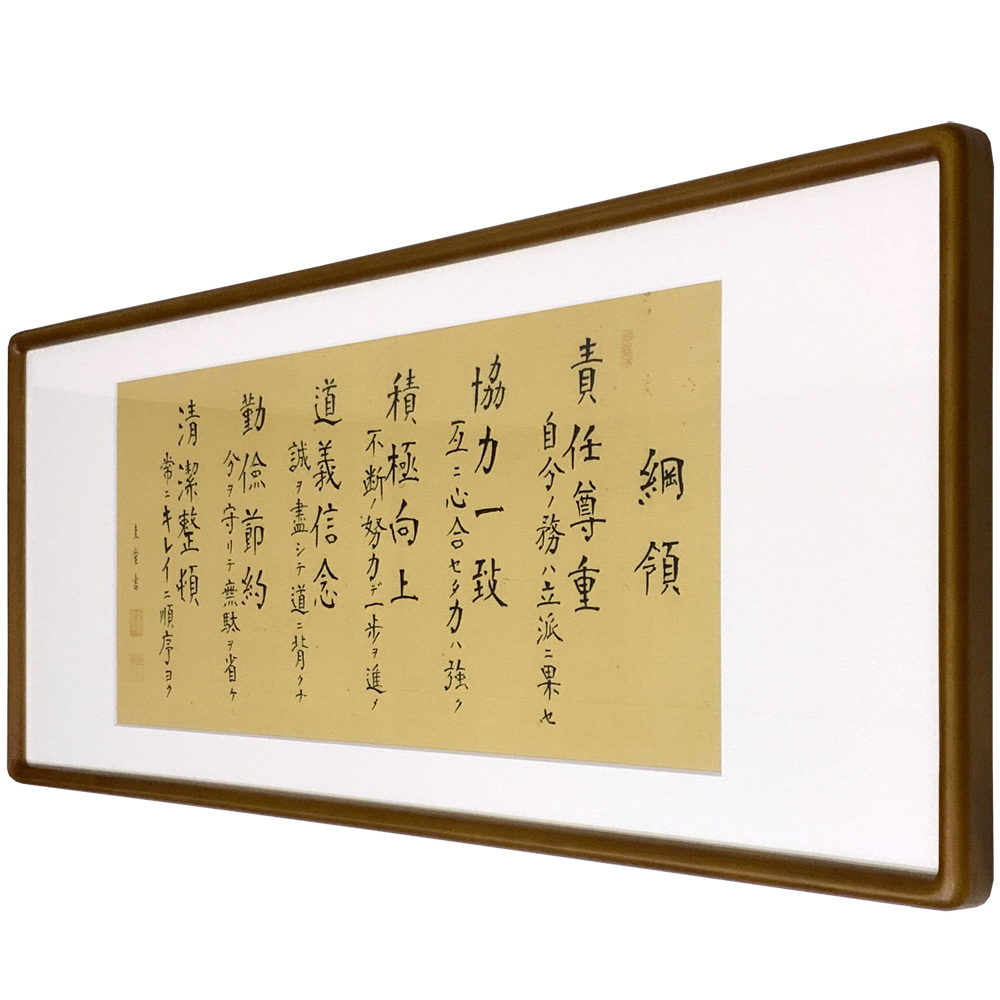 綱領
責任尊重
自分ノ務ハ立派ニ果セ
協力一致
互ニ心合セタ力ハ強ク
積極向上
不断ノ努力デ一歩ヲ進メ
道義信念
誠ヲ盡シテ道ニ背クナ
勤倹節約
分ヲ守リテ無駄ヲ省ケ
清潔整頓
常ニキレイニ順序ヨク